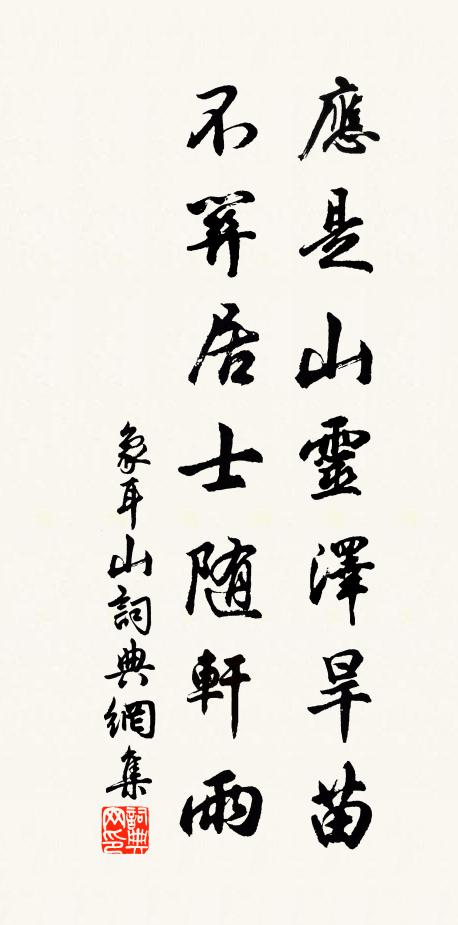 應是山靈澤旱苗
不關居士随軒雨
象耳山詞典網集
詞典网印